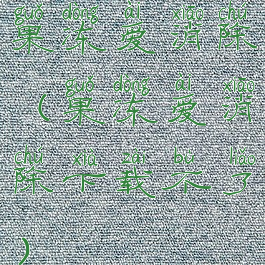 guǒ dòng ài xiāo chú
果冻爱消除
guǒ dòng ài xiāo
(果冻爱消
chú xià zài bù liǎo
除下载不了
)